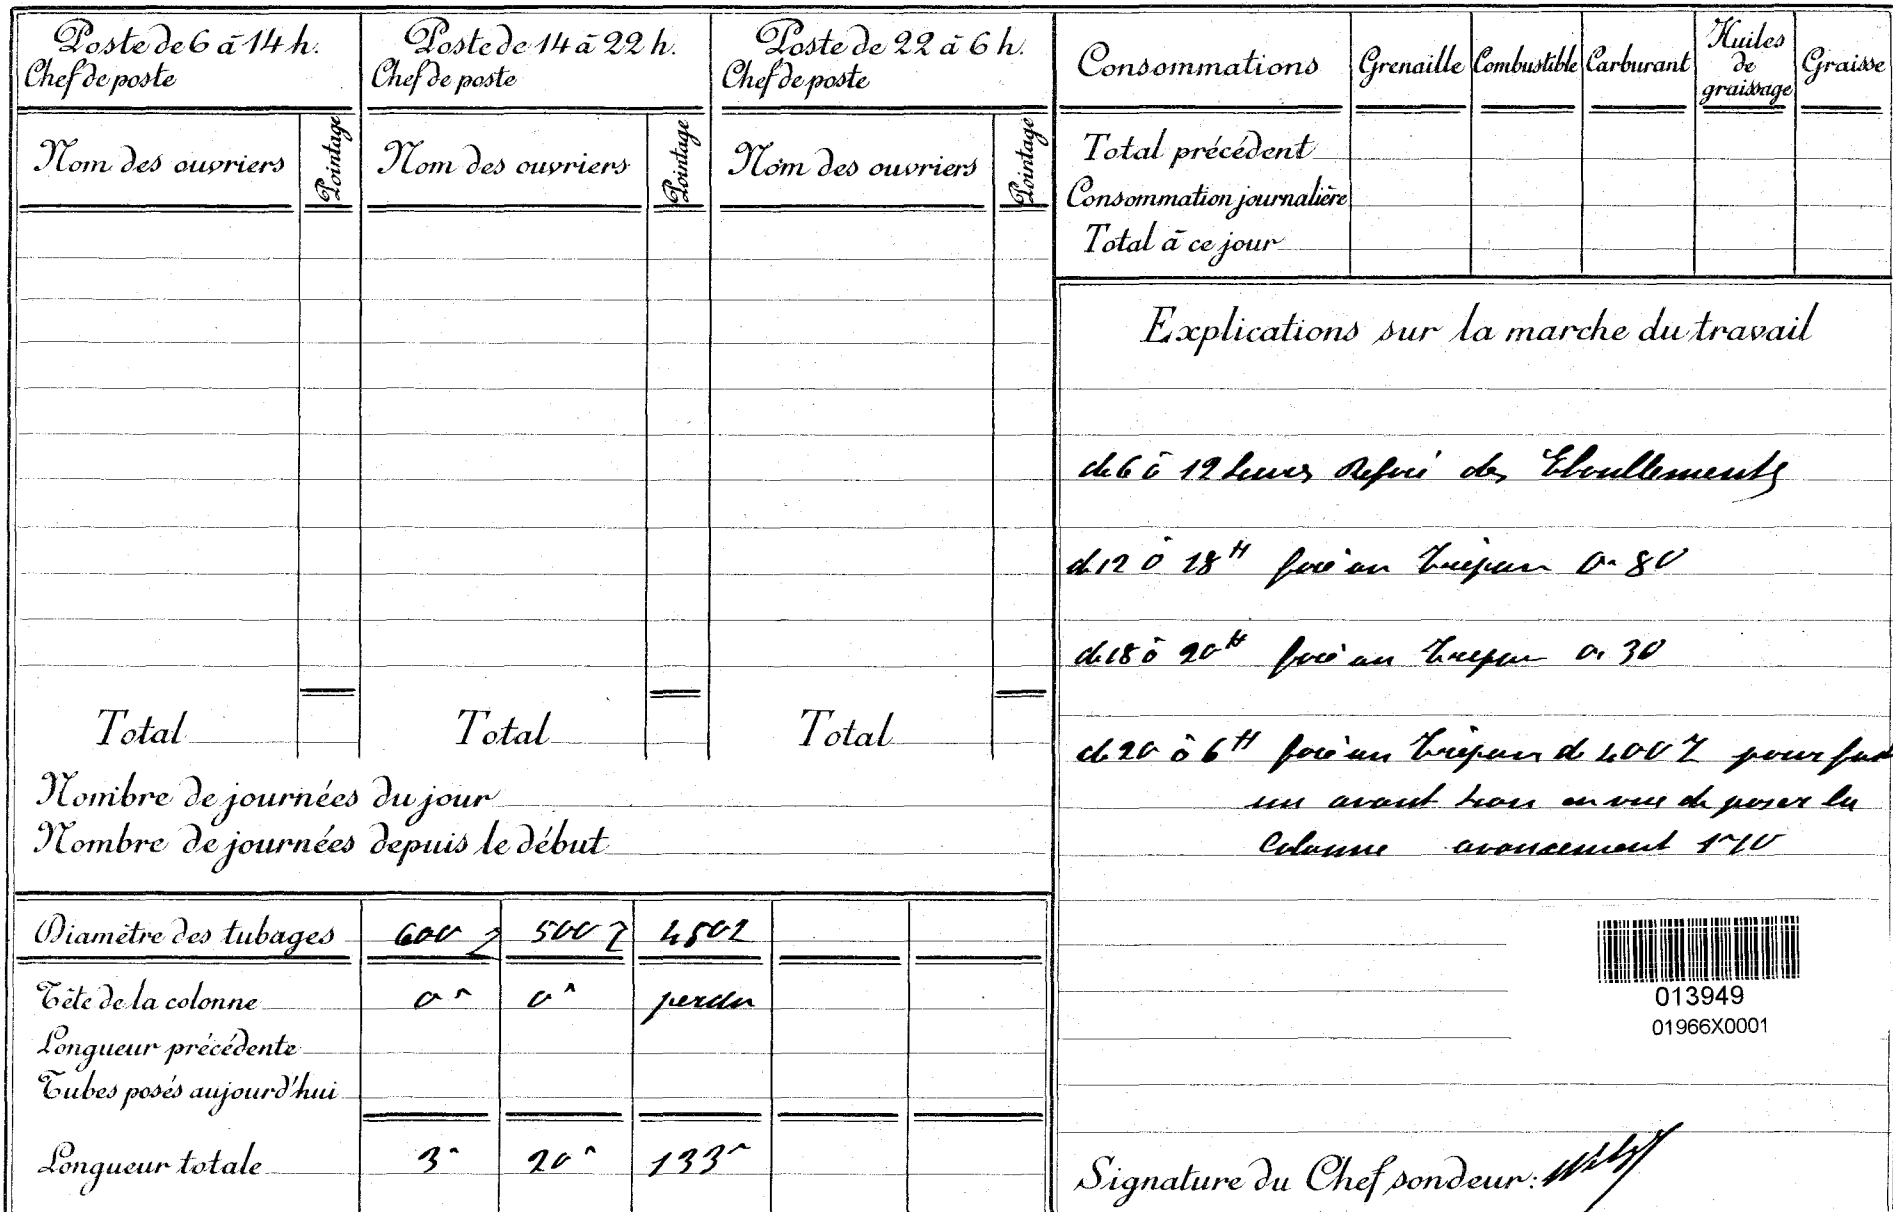 Poste de 6 à 14 h.
Chef de poste
Nom des ouvriers
Pointage
Total
Poste de 14 à 22 h.
Chef de poste
Nom des ouvriers
Pointage
Total
Poste de 22 à 6 h.
Chef de poste
Nom des ouvriers
Pointage
Total
Nombre de journées du jour
Nombre de journées depuis le début
Diamètre des tubages 600 500 450
Tête de la colonne 0m 0m perdu
Longueur précédente
Tubes posés aujourd'hui
Longueur totale 3m 20m 133m
Consommations Grenaille Combustible Carburant Huiles de graissage Graisse
Total précédent
Consommation journalière
Total à ce jour
Explications sur la marche du travail
de 6 à 12 heures Reforé des Eboullements
de 12 à 18H foré au Trépan 0m80
de 18 à 20H foré au Trepan 0m30
de 20 à 6H foré au Trépan de 400 pour
un avant trou en vue de poser la
Colonne avancement 1m10
013949
01966X0001
Signature du Chef sondeur: